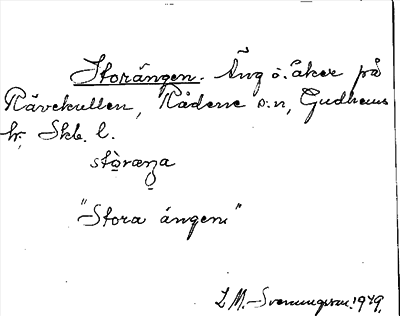 Storängen. Äng o. åker på
Rävekullen, Rådene s:n, Gudhems
hr, Skb. l.
stòræŋa
"Stora ängen"
L. M. Svenungsson 1949.